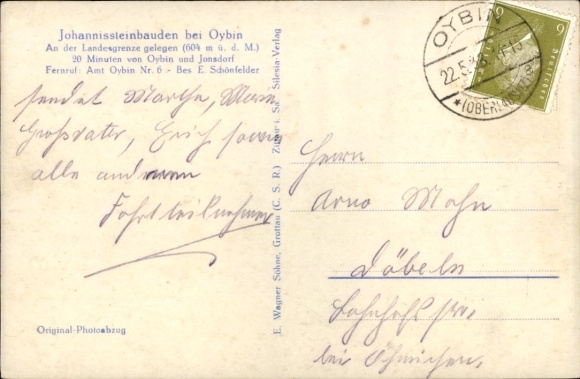 Johannissteinbauden bei Oybin
An der Landesgrenze gelegen (604 m ü. d. M.)
20 Minuten von Oybin und Jonsdorf
Fernruf: Amt Oybin Nr. 6 - Bes E. Schönfelder
sendet Martha,
Großvater, Erich sowie
alle anderen
Fahrtteilnehmer
Original-Photoabzug
E. Wagner Sohne, Grottau (C. S. R.) Zittau i. Sa. Silesia-Verlag
OYBIN
22.5.
*(OBERLAUSITZ)
6
6
Herrn
Arno Mohn
Döbeln
Bahnhofstr.
bei